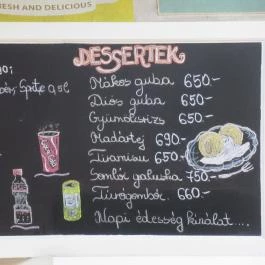 FRESH AND DELICIOUS
DESSERTEK
Mákos guba 650.-
Diós guba 650.-
Gyümölcsrizs 650.-
Madártej 690.-
Tiramisu 650.-
Somlói galuska 750.-
Túrógombóc 660.-
Napi édesség kínálat....
0,5l